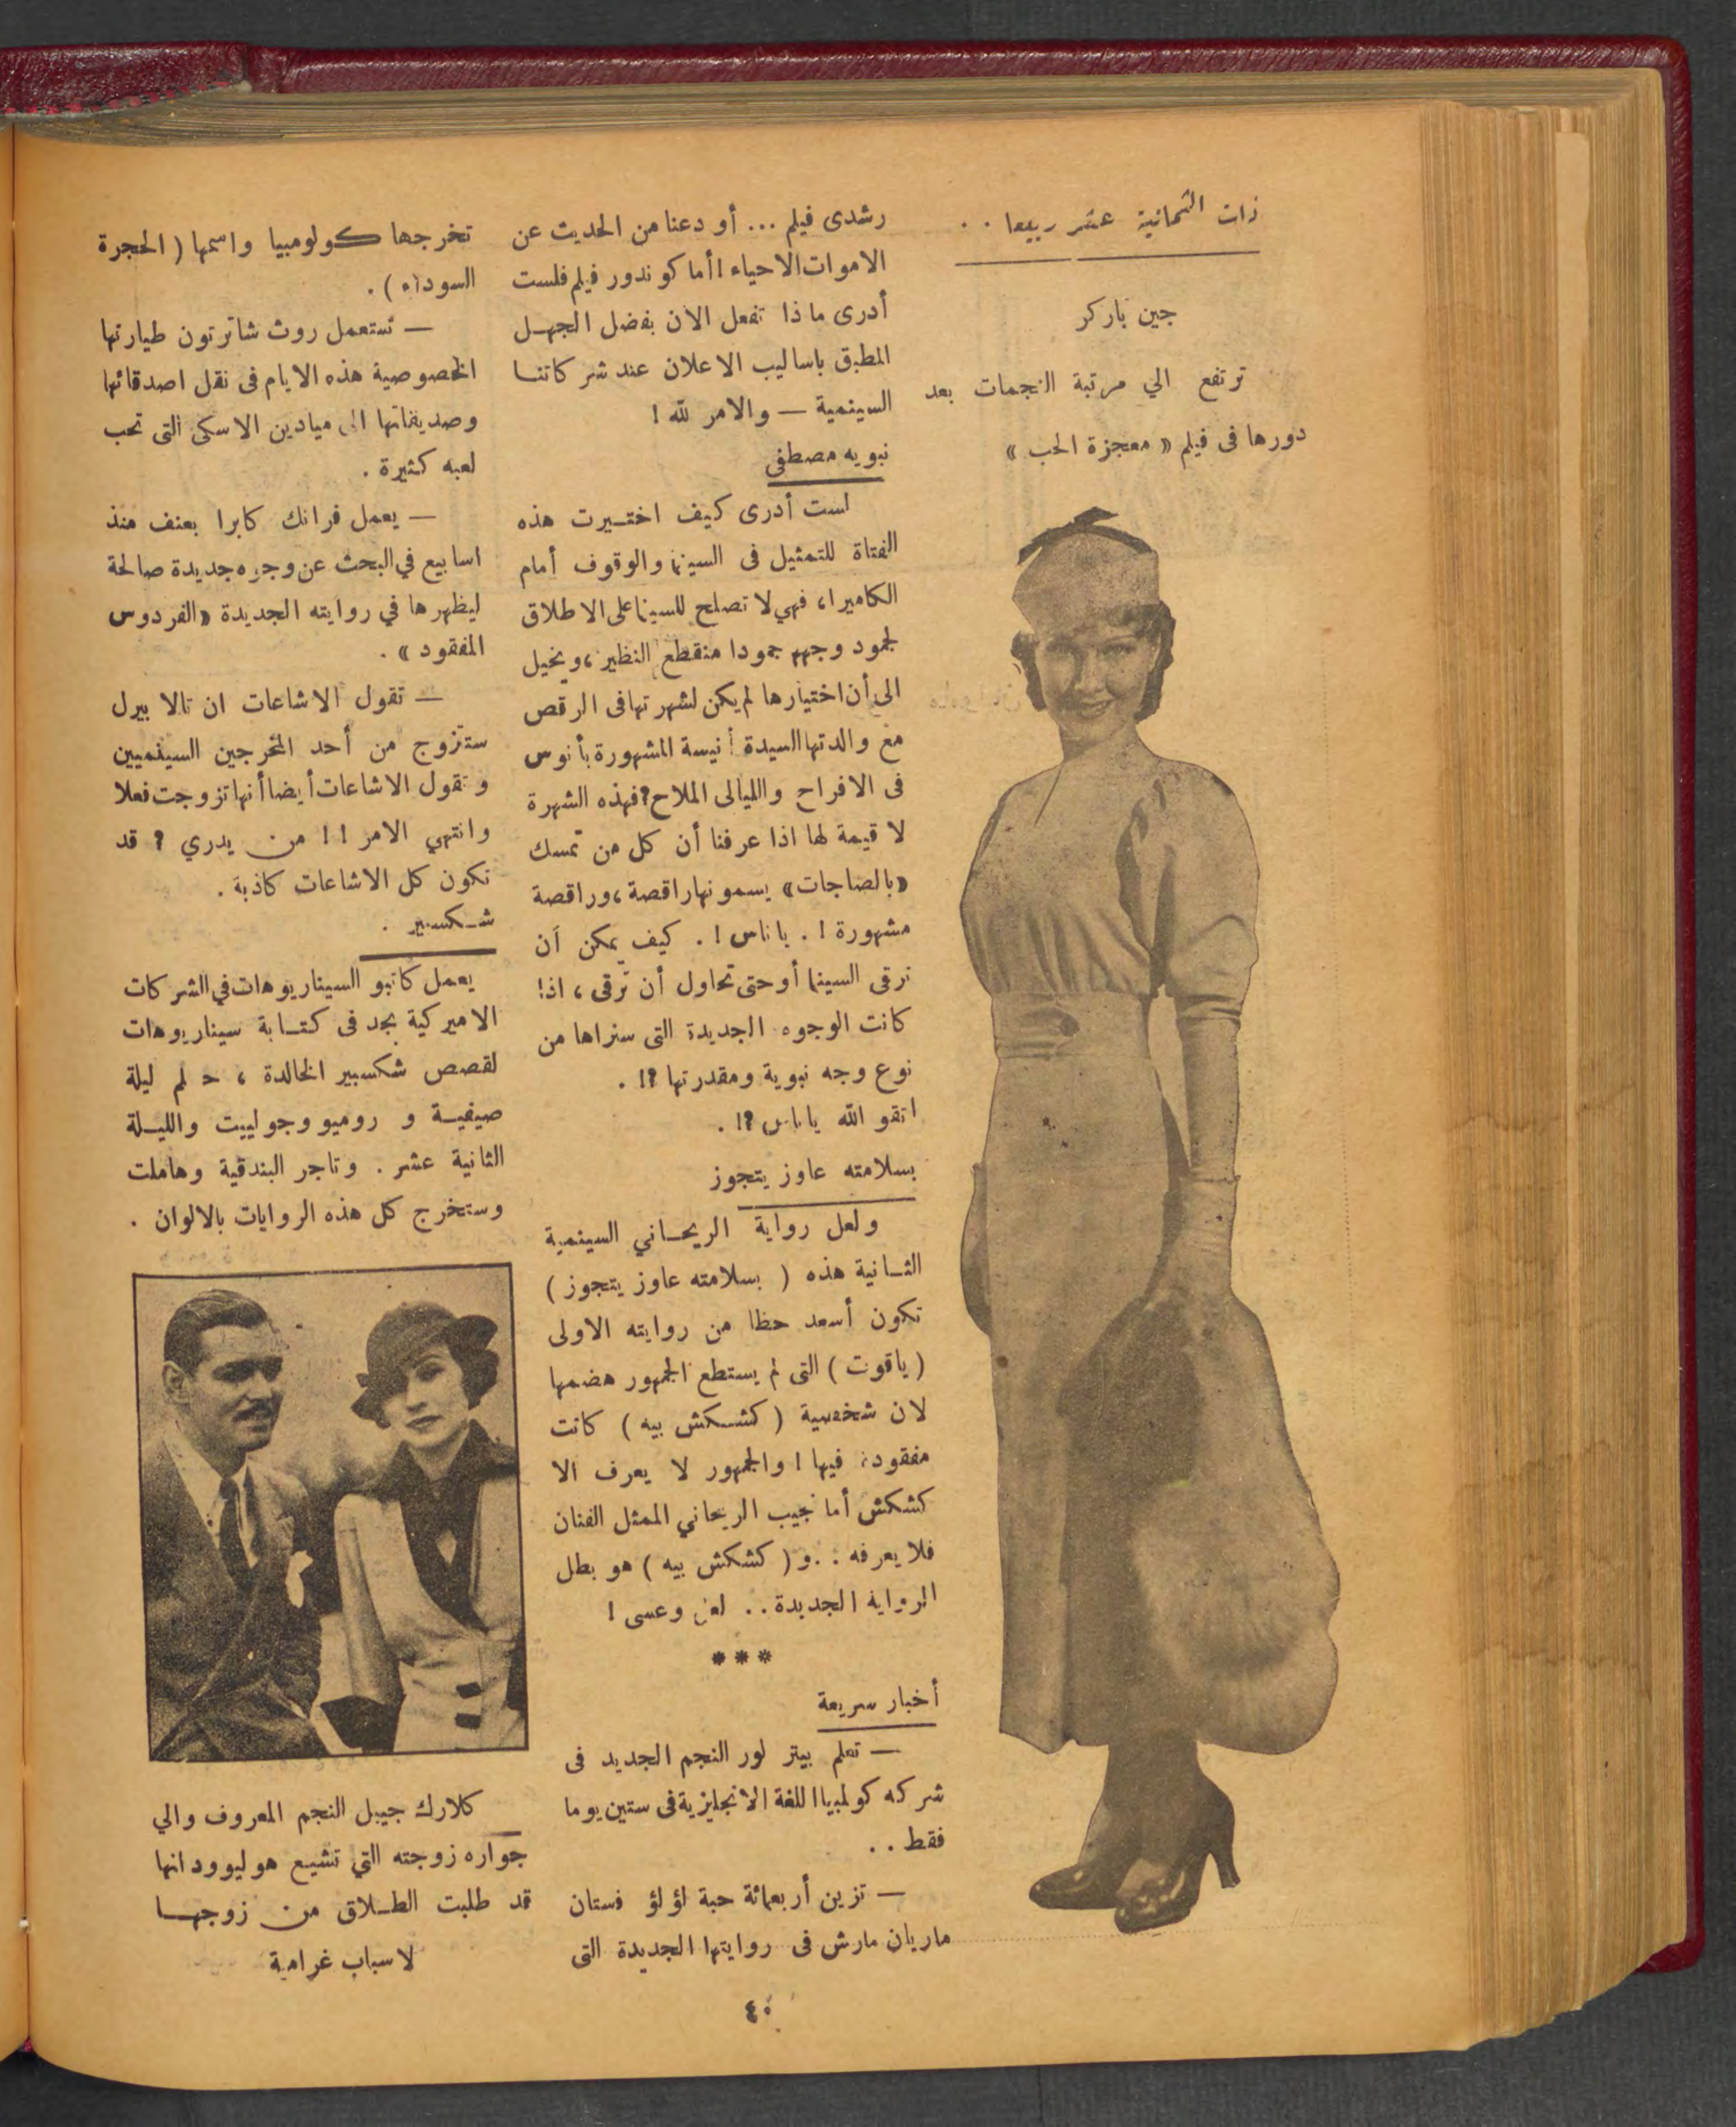 ذات الثمانية عشر ربيعا . .
جين باركر
ترتفع الي مرتبة النجمات بعد
دورها فى فيلم « معجزة الحب »
رشدى فيلم ... أو دعنا من الحديث عن
الاموات الاحياء ! أما كوندور فيلم فلست
أدرى ماذا تفعل الآن بفضل الجهل
المطبق باساليب الاعلان عند شركاتنا
السينمية — والامر لله !
نبويه مصطفى
لست أدرى كيف اختيرت هذه
الفتاة للتمثيل فى السينما والوقوف أمام
الكاميرا، فهي لا تصلح للسينما على الاطلاق
لجمود وجهها جمودا منقطع النظير، ويخيل
الى أن اختيارها لم يكن لشهرتها فى الرقص
مع والدتها السيدة أنيسة المشهورة بأنوس
فى الافراح والليالى الملاح؟ فهذه الشهرة
لا قيمة لها اذا عرفنا أن كل من تمسك
«بالصاجات» يسمونها راقصة، وراقصة
مشهورة ! . ياناس ! . كيف يمكن أن
ترقى السينما أو حتى تحاول أن ترقى ، اذا
كانت الوجوه الجديدة التى سنراها من
نوع وجه نبوية ومقدرتها ؟! .
اتقو الله ياناس ؟! .
بسلامته عاوز يتجوز
ولعل رواية الريحاني السينمية
الثانية هذه ( بسلامته عاوز يتجوز )
تكون أسعد حظا من روايته الاولى
( ياقوت ) التى لم يستطع الجمهور هضمها
لان شخصية ( كشكش بيه ) كانت
مفقودة فيها ! والجمهور لا يعرف الا
كشكش أما نجيب الريحاني الممثل الفنان
فلا يعرفه : . و ( كشكش بيه ) هو بطل
الرواية الجديدة . . لعل وعسى !
* * *
أخبار سريعة
— تعلم بيتر لور النجم الجديد فى
شركه كولمبيا اللغة الانجليزية فى ستين يوما
فقط . .
— تزين أربعمائة حبة لؤلؤ فستان
ماريان مارش فى روايتها الجديدة التى
تخرجها كولومبيا واسمها ( الحجرة
السوداء ) .
— تستعمل روث شاترتون طيارتها
الخصوصية هذه الايام فى نقل اصدقائها
وصديقاتها الى ميادين الاسكى التى تحب
لعبه كثيرة .
— يعمل فرانك كابرا بعنف منذ
اسابيع في البحث عن وجوه جديدة صالحة
ليظهرها في روايته الجديدة «الفردوس
المفقود » .
— تقول الاشاعات ان تالا بيرل
ستتزوج من أحد المخرجين السينميين
وتقول الاشاعات أيضا أنها تزوجت فعلا
وانتهي الامر ! ! من يدري ؟ قد
تكون كل الاشاعات كاذبة .
شكسبير .
يعمل كاتبو السيناريوهات في الشركات
الاميركية بجد فى كتابة سيناريوهات
لقصص شكسبير الخالدة ، حلم ليلة
صيفية و روميو وجولييت والليلة
الثانية عشر . وتاجر البندقية وهاملت
وستخرج كل هذه الروايات بالالوان .
كلارك جيبل النجم المعروف والي
جواره زوجته التي تشيع هوليوود انها
قد طلبت الطلاق من زوجها
لاسباب غرامية
٤٠